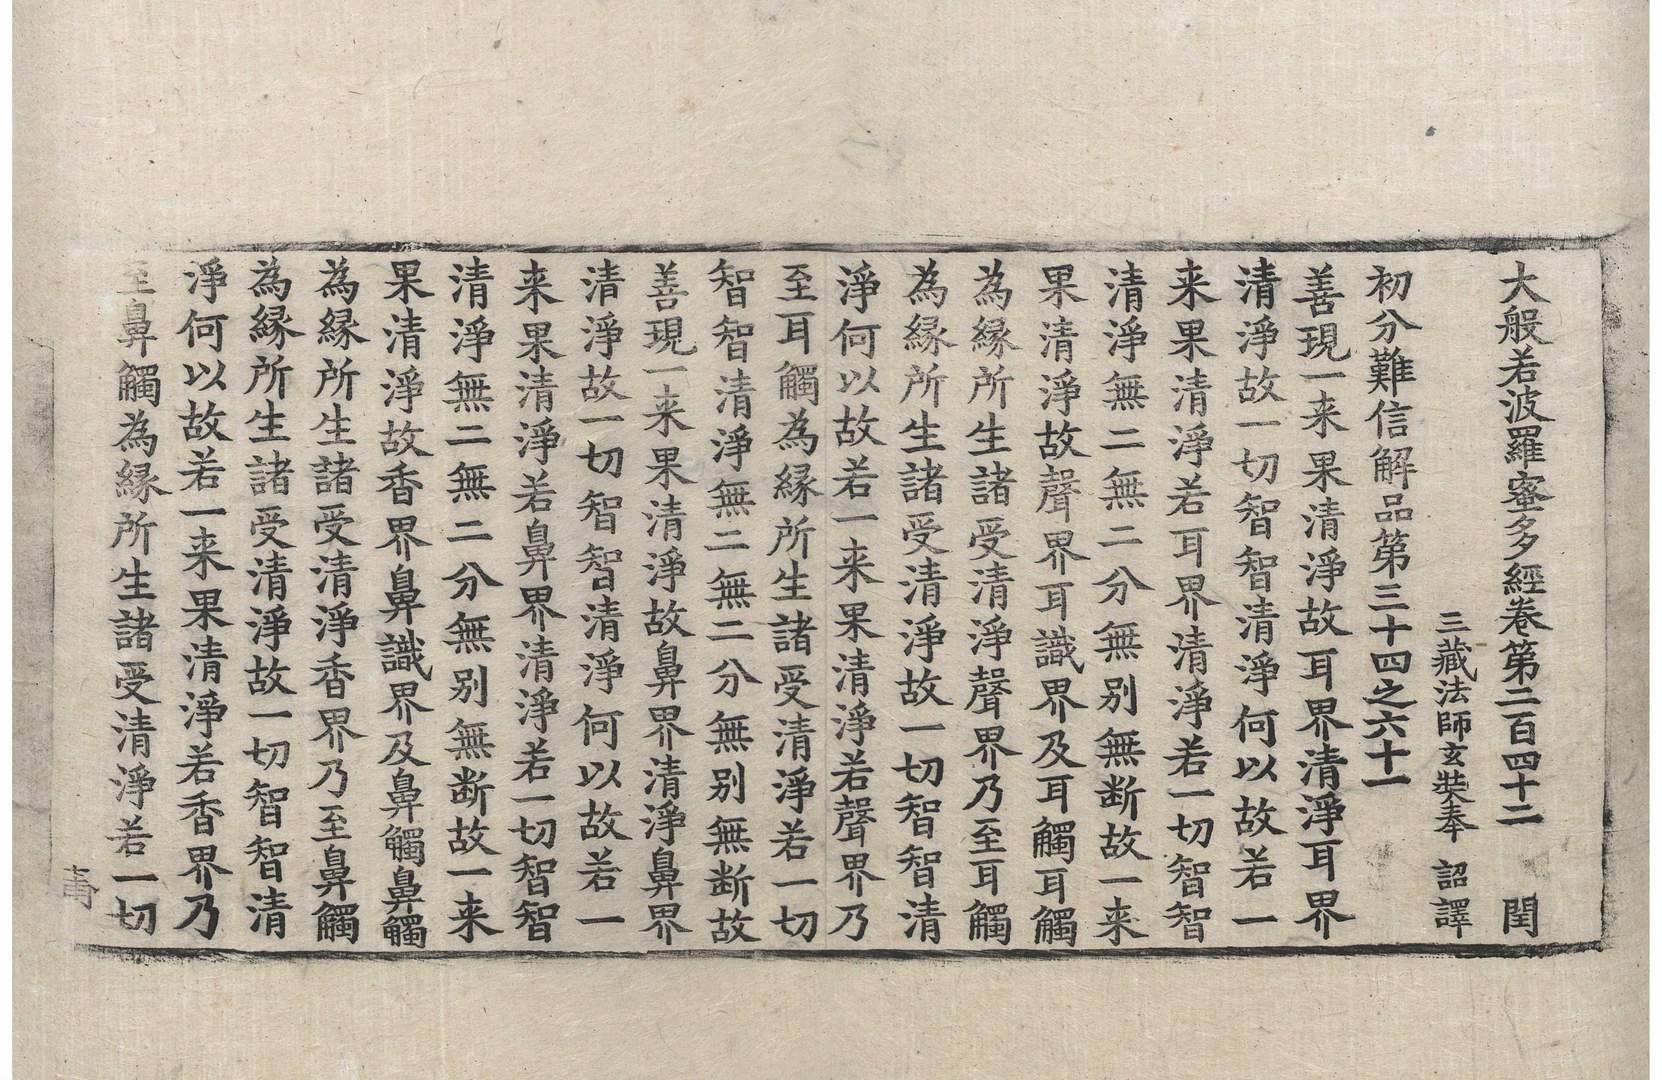 大般若波羅蜜多經卷第二百四十二 閏
三藏法師玄奘奉 詔譯
初分難信解品第三十四之六十一
善現一来果清淨故耳界清淨耳界
清淨故一切智智清淨何以故若一
来果清淨若耳界清淨若一切智智
清淨無二無二分無别無断故一来
果清淨故聲界耳識界及耳觸耳觸
為縁所生諸受清淨聲界乃至耳觸
為縁所生諸受清淨故一切智智清
淨何以故若一来果清淨若聲界乃
至耳觸為縁所生諸受清淨若一切
智智清淨無二無二分無别無断故
善現一来果清淨故鼻界清淨鼻界
清淨故一切智智清淨何以故若一
来果清淨若鼻界清淨若一切智智
清淨無二無二分無别無断故一来
果清淨故香界鼻識界及鼻觸鼻觸
為縁所生諸受清淨香界乃至鼻觸
為縁所生諸受清淨故一切智智清
淨何以故若一来果清淨若香界乃
至鼻觸為縁所生諸受清淨若一切